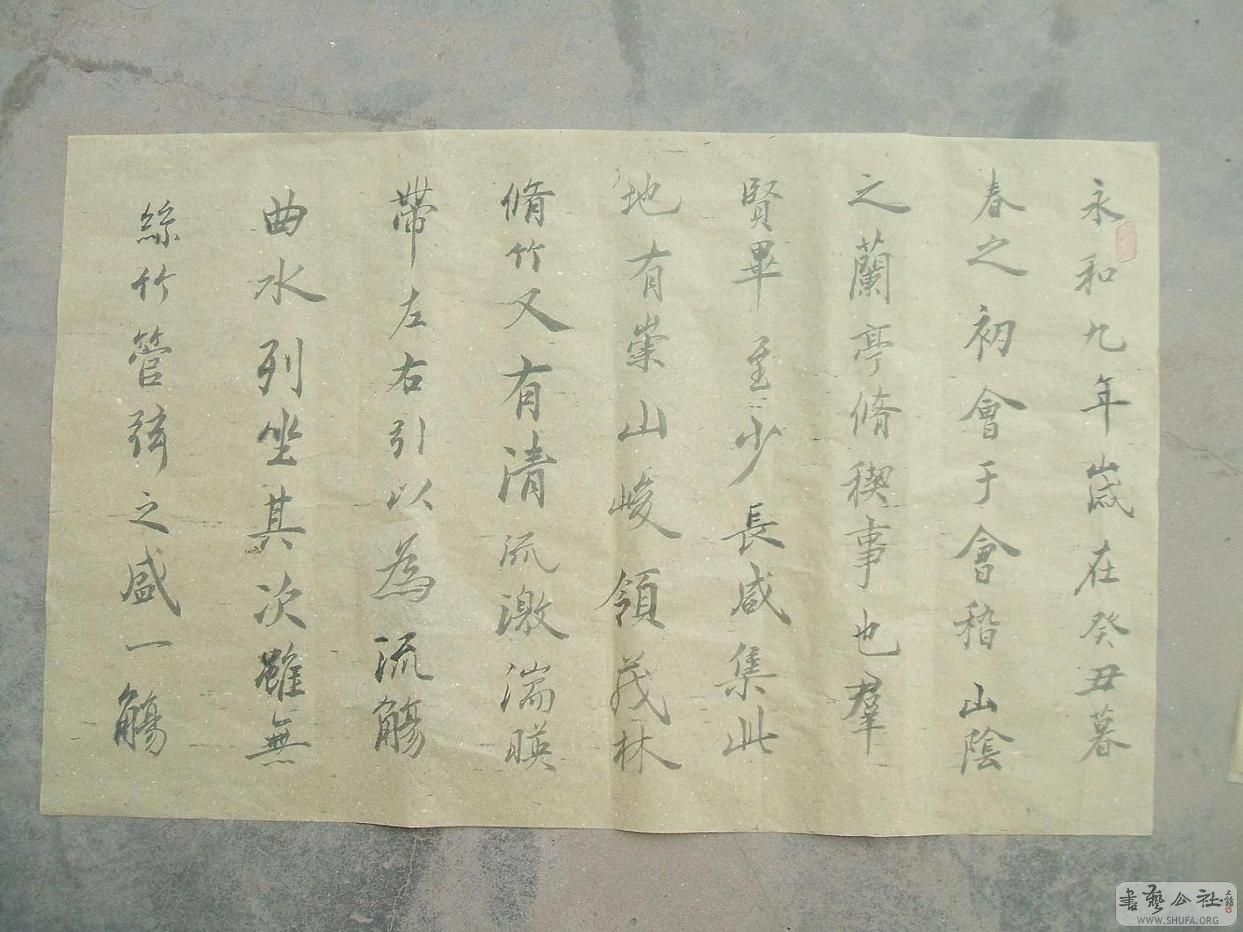 永和九年歲在癸丑暮
春之初會于會稽山陰
之蘭亭脩稧事也羣
賢畢至少長咸集此
地有崇山峻領茂林
脩竹又有清流激湍暎
帶左右引以為流觴
曲水列坐其次雖無
絲竹管弦之盛一觴
書藝公社
WWW.SHUFA.ORG